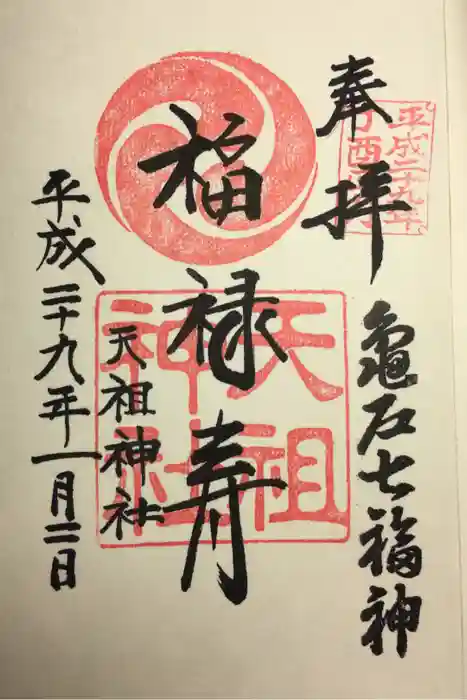 奉拝
亀石七福神
福禄寿
天祖神社
平成二十九年一月二日
平成二十九年
丁酉
天祖神社